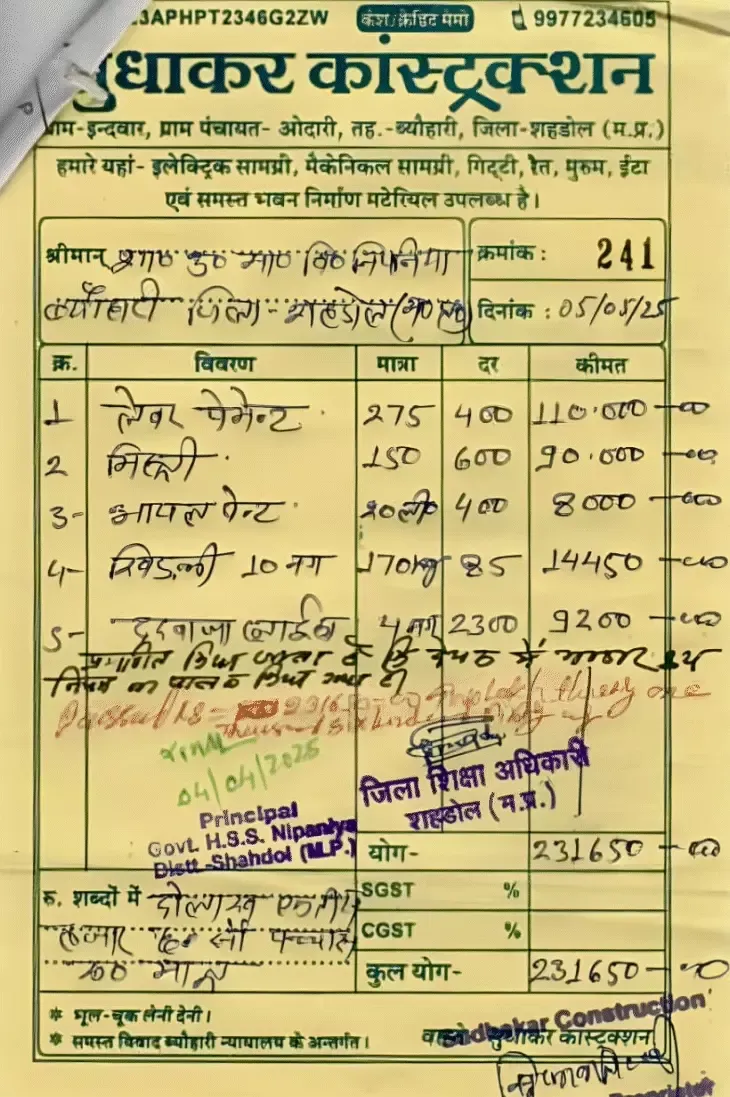 3APHPT2346G2ZW कैश/क्रेडिट मेमो 9977234605
सुधाकर कांस्ट्रक्शन
ग्राम-इन्दवार, ग्राम पंचायत- ओदारी, तह.-ब्यौहारी, जिला-शहडोल (म.प्र.)
हमारे यहां- इलेक्ट्रिक सामग्री, मैकेनिकल सामग्री, गिट्टी, रेत, मुरुम, ईटा
एवं समस्त भवन निर्माण मटेरियल उपलब्ध है।
श्रीमान् शा० उ० मा० वि० निपनिया
ब्यौहारी जिला- शहडोल (म०प्र०)
क्रमांक : 241
दिनांक : 05/05/25
क्र. विवरण मात्रा दर कीमत
1 लेबर पेमेन्ट 275 400 110.000-00
2 मिस्त्री 150 600 90.000-00
3- आयल पेन्ट 20ली० 400 8000-00
4- खिड़की 10 नग 170kg 85 14450-00
5- दरवाजा 4 नग 2300 9200-00
प्रमाणित किया जाता है कि में भण्डार क्रय
नियम का पालन किया गया है।
04/04/2025
Principal
Govt. H.S.S. Nipaniya
Distt.-Shahdol (M.P.)
जिला शिक्षा अधिकारी
शहडोल (म.प्र.)
योग- 231650-00
रु. शब्दों में दो लाख एकतीस
हजार छः सौ पच्चास
रू० मात्र
SGST %
CGST %
कुल योग- 231650-00
* भूल-चूक लेनी देनी।
* समस्त विवाद ब्यौहारी न्यायालय के अन्तर्गत।
Sudhakar Construction
वास्ते सुधाकर कांस्ट्रक्शन
Proprietor